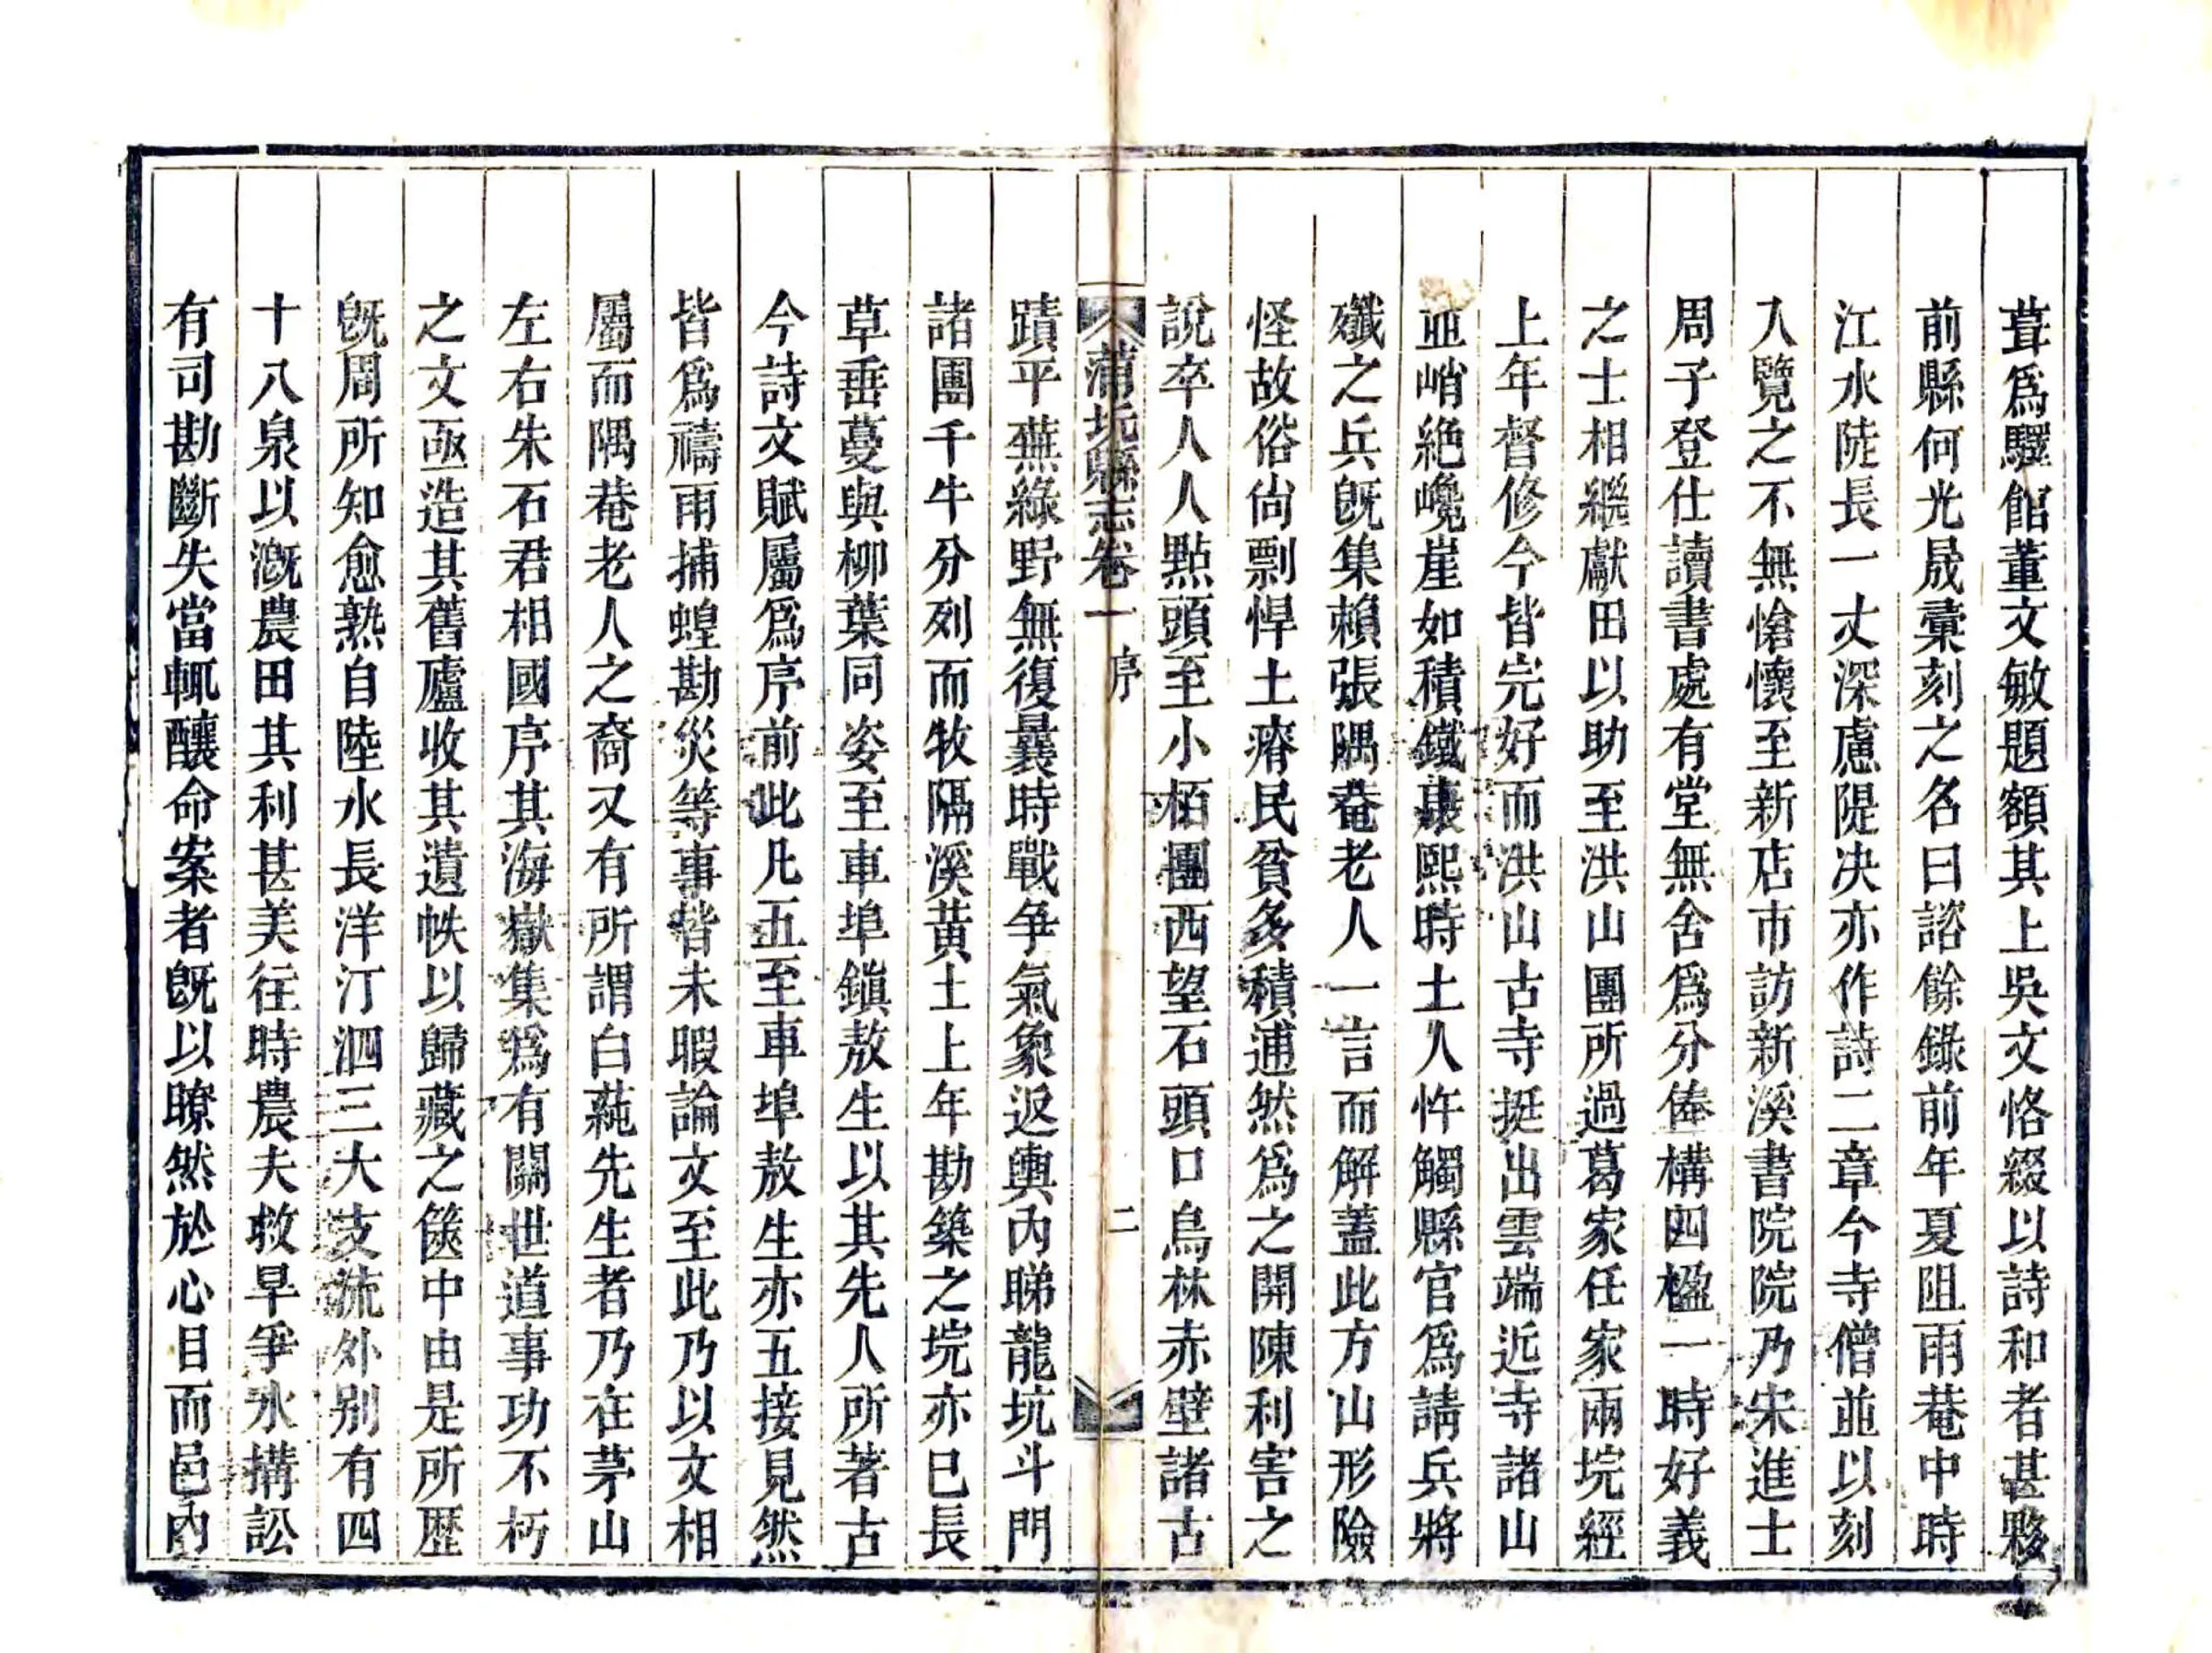 葺爲驛館董文敏題額其上吳文恪綴以詩和者甚夥
前縣何光晟彙刻之名曰諮餘錄前年夏阻雨巷中時
江水陡長一丈深慮隄决亦作詩二章今寺僧並以刻
入覽之不無愴懷至新店市訪新溪書院院乃宋進士
周子登仕讀書處有堂無舍爲分俸構四楹一時好義
之士相繼獻田以助至洪山團所過葛家任家兩垸經
上年督修今皆完好而洪山古寺挺出雲端近寺諸山
並峭絶巉崖如積鐵康熙時土人忤觸縣官爲請兵將
殲之兵旣集賴張隅菴老人一言而解蓋此方山形險
怪故俗尙剽悍土瘠民貧多積逋然爲之開陳利害之
說卒人人㸃頭至小栢團西望石頭口烏林赤壁諸古
蒲圻縣志卷一 序 二
蹟平蕪綠野無復曩時戰争氣象返輿內睇龍坑斗門
諸團千牛分列而牧隔溪黃土上年勘築之垸亦已長
草垂蔓與柳葉同姿至車埠鎭敖生以其先人所著古
今詩文賦屬爲序前此凡五至車埠敖生亦五接見然
皆爲禱雨捕蝗勘災等事皆未暇論文至此乃以文相
屬而隅菴老人之裔又有所謂白蒓先生者乃在茅山
左右朱石君相國序其海嶽集爲有關世道事功不朽
之文亟造其舊廬收其遺帙以歸藏之篋中由是所歷
旣周所知愈熟自陸水長洋汀泗三大支流外别有四
十八泉以漑農田其利甚美往時農夫救旱爭水搆訟
有司勘斷失當輒釀命案者旣以瞭然於心目而邑內